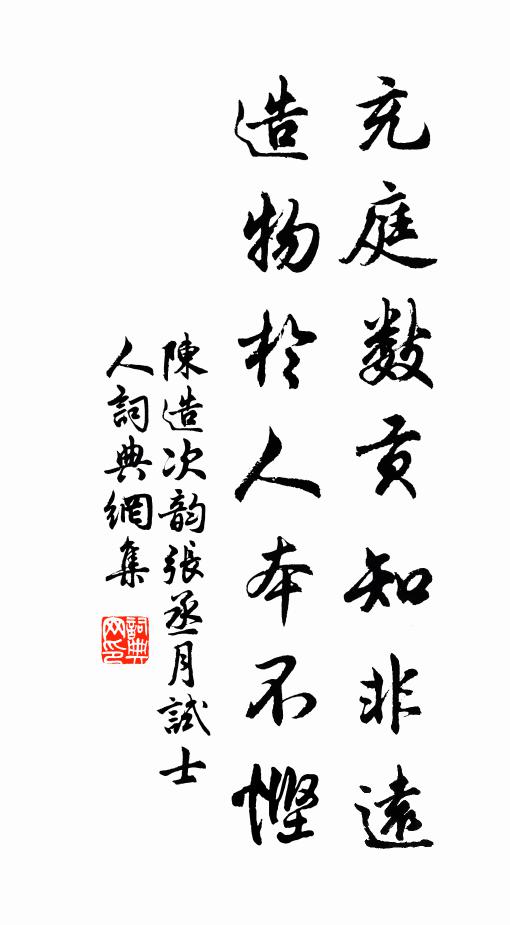 充庭數貢知非遠
造物於人本不慳
陳造次韵張丞月試士
人詞典網集
詞典网印